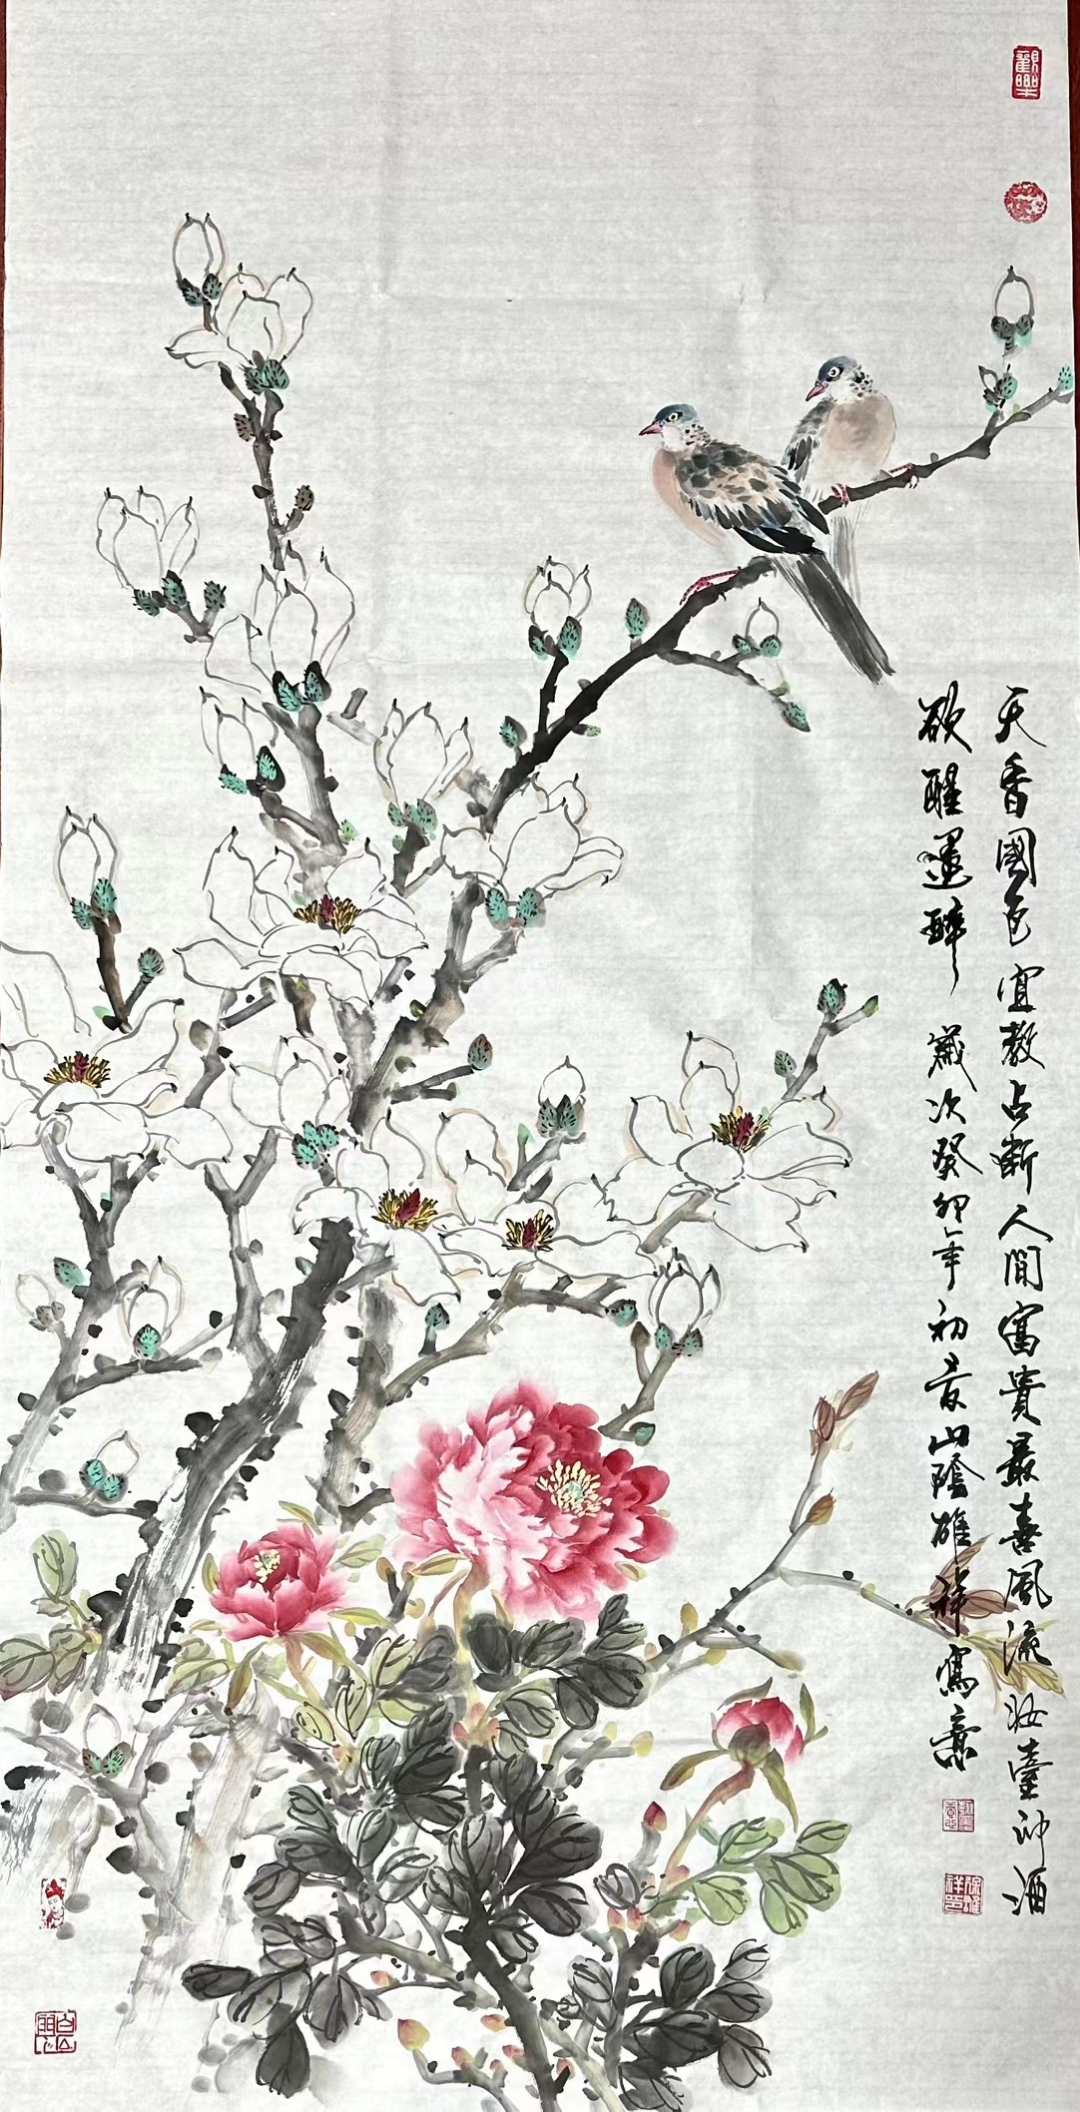 天香國色宜教占斷人間富貴最喜風流妝臺沖酒
欲醒還醉歲次癸卯年初夏山陰雄祥寫意
觀樂